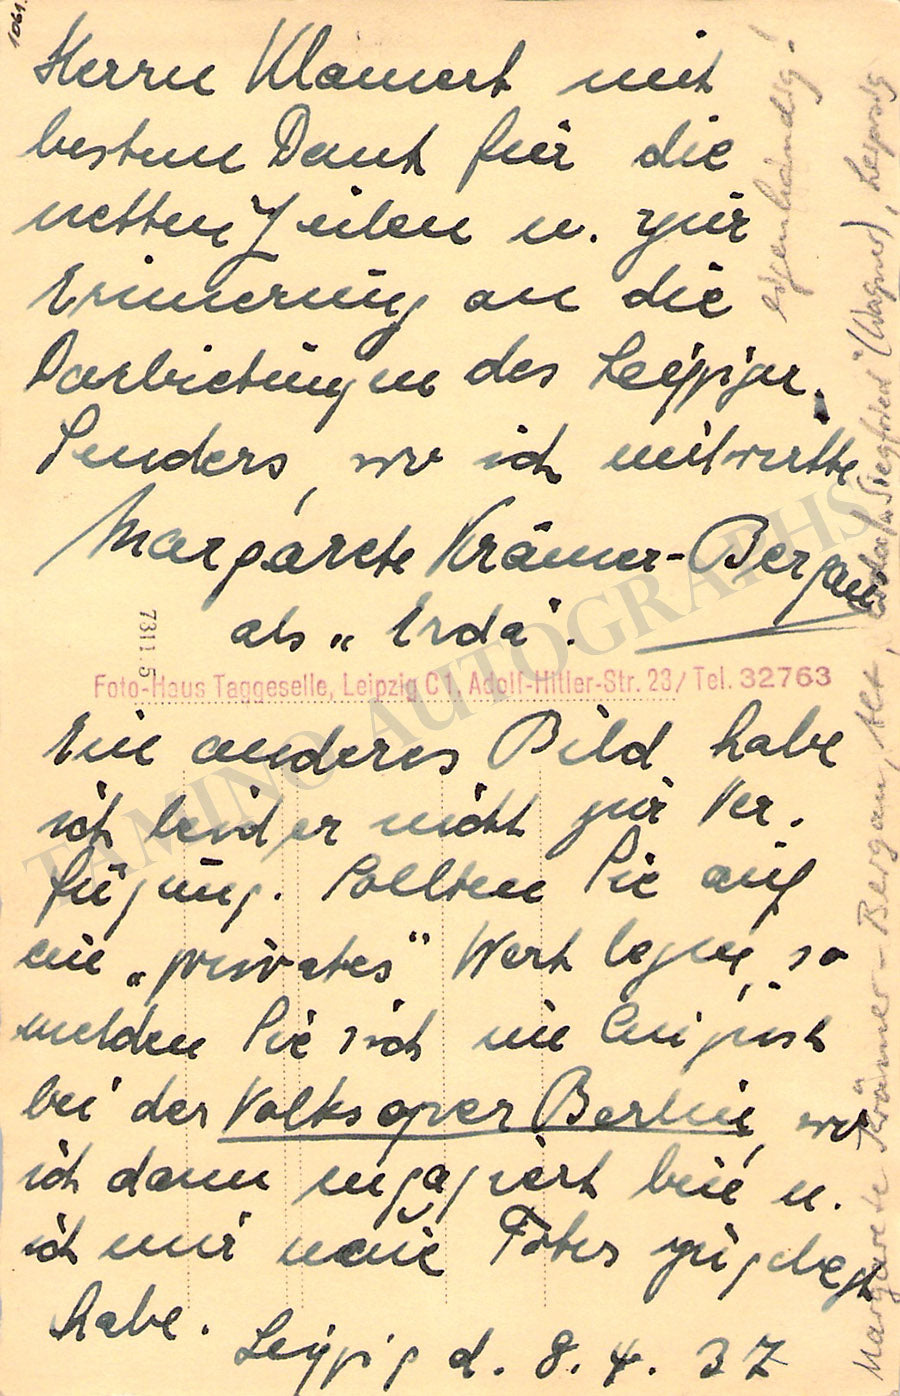 1061.
Herrn Klamert mit
bestem Dank für die
netten Zeilen u. zur
Erinnerung an die
Darbietungen des Leipziger
Senders, wo ich mitwirkte
Margarete Krämer-Bergau
als „Erda".
7311.5
Foto-Haus Taggeselle, Leipzig C1, Adolf-Hitler-Str. 23/ Tel. 32763
Ein anderes Bild habe
ich leider nicht zur Ver-
fügung. Sollten Sie auf
ein „privates" Wert legen, so
melden Sie sich im August
bei der Volksoper Berlin, wo
ich dann engagiert bin u.
ich mir neue Fotos zugelegt
habe. Leipzig d. 8. 4. 37
eigenhändig!
Margarete Krämer-Bergau, Alt, „Erda" in „Siegfried" (Wagner), Leipzig
TAMINO AUTOGRAPHS